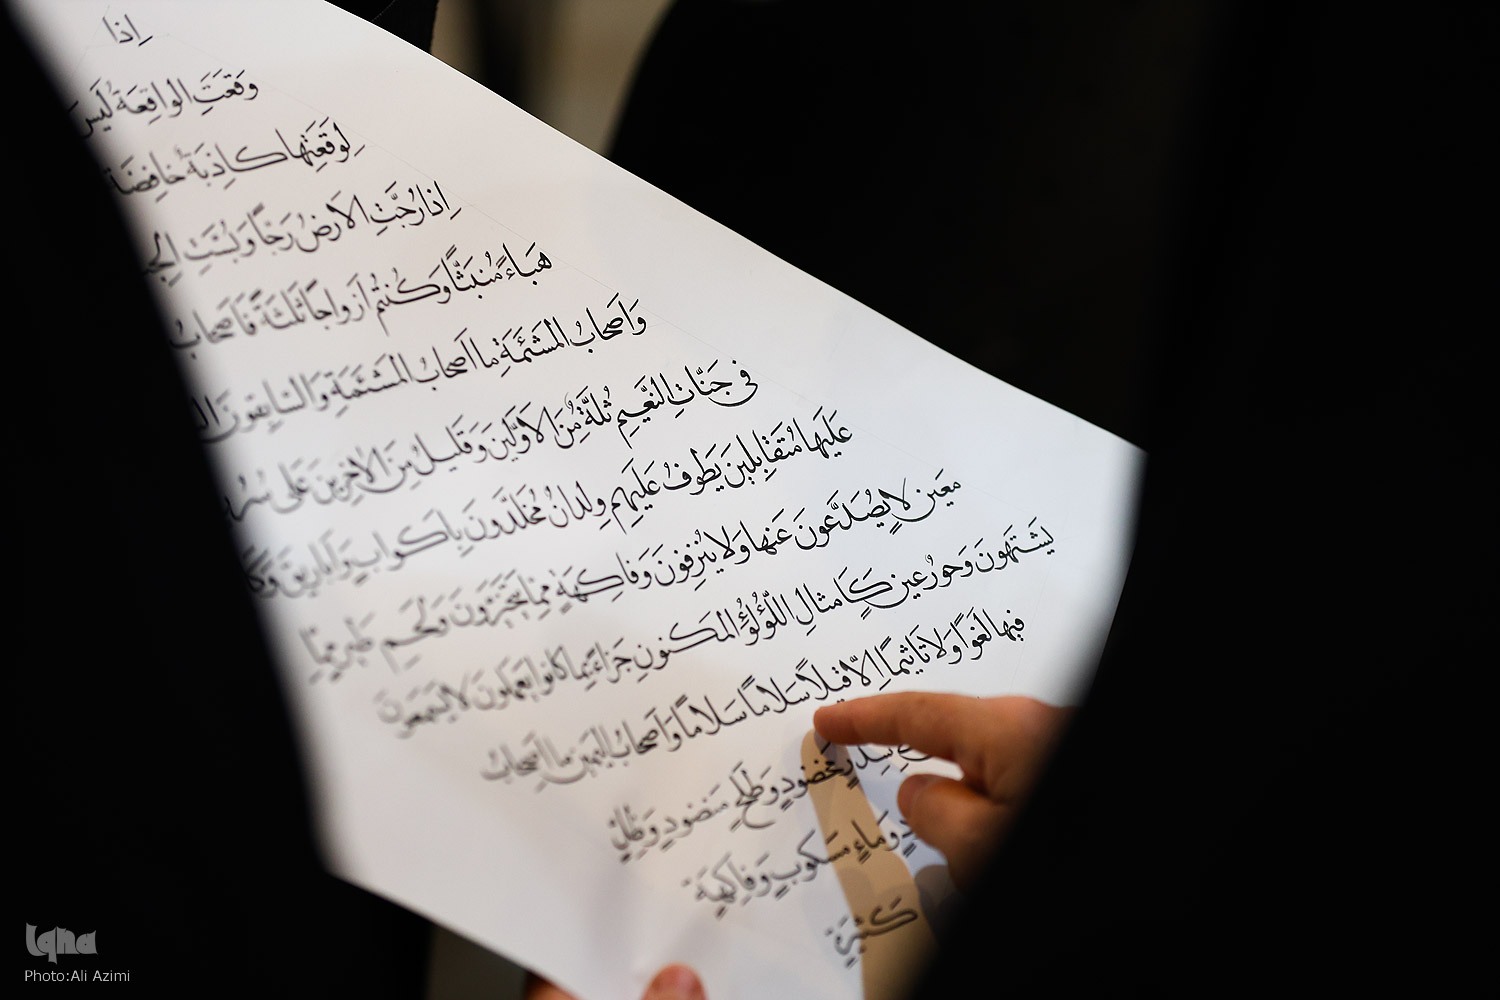 اِذا
وَقَعَتِ الواقِعَةُ لَيسَ
لِوَقعَتِها كاذِبَةٌ خافِضَةٌ
اِذا رُجَّتِ الاَرضُ رَجًّا وَبُسَّتِ
هَباءً مُنبَثًّا وَكُنتُم اَزواجًا ثَلٰثَةً فَاَصحابُ
وَاَصحابُ المَشئَمَةِ ما اَصحابُ المَشئَمَةِ وَالسّابِقونَ
فى جَنّاتِ النَّعيمِ ثُلَّةٌ مِنَ الاَوَّلينَ وَقَليلٌ مِنَ الاٰخِرينَ عَلى سُرُرٍ
عَلَيها مُتَقابِلينَ يَطوفُ عَلَيهِم وِلدانٌ مُخَلَّدونَ بِاَكوابٍ وَاَباريقَ
مَعينٍ لا يُصَدَّعونَ عَنها وَلا يُنزِفونَ وَفاكِهَةٍ مِمّا يَتَخَيَّرونَ وَلَحمِ طَيرٍ مِمّا
يَشتَهونَ وَحورٌ عينٌ كَاَمثالِ اللُّؤلُؤِ المَكنونِ جَزاءً بِما كانوا يَعمَلونَ لا يَسمَعونَ
فيها لَغوًا وَلا تَاثيمًا اِلّا قيلًا سَلامًا سَلامًا وَاَصحابُ اليَمينِ ما اَصحابُ
سِدرٍ مَخضودٍ وَطَلحٍ مَنضودٍ وَظِلٍّ
وَماءٍ مَسكوبٍ وَفاكِهَةٍ
كَثيرَةٍ
Iqna
Photo:Ali Azimi